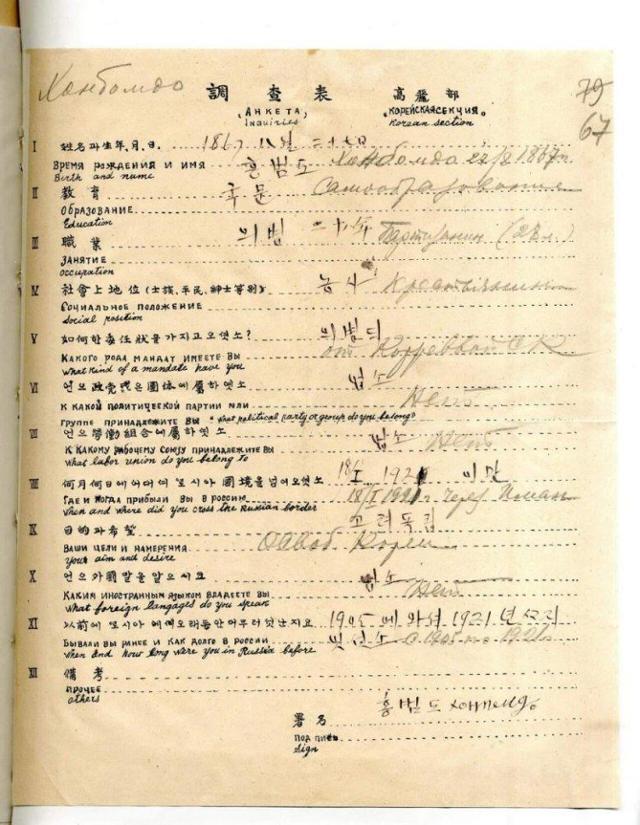 Хонбомдо
調查表 高麗部 79
АНКЕТА КОРЕЙСКАЯ СЕКЦИЯ 67
Inquiries Korean section
I 姓名과生年,月,日. 1867
ВРЕМЯ РОЖДЕНИЯ И ИМЯ 홍범도 Хонбомдо 1867 г.
Birth and name
II 教育 국문 Самообразование
ОБРАЗОВАНИЕ
Education
III 職業 의병 二十年 Партизан
ЗАНЯТИЕ
occupation
IV 社會上地位(士族,平民,紳士等別) 농사 Крестьянин
СОЦИАЛЬНОЕ ПОЛОЖЕНИЕ
Social position
V 如何한委任狀을가지고오엿소? 의병듸
КАКОГО РОДА МАНДАТ ИМЕЕТЕ ВЫ от
What kind of a mandate have you
VI 언으政党或은團体에屬하엿소 업소
К КАКОЙ ПОЛИТИЧЕСКОЙ ПАРТИИ ИЛИ Нет
ГРУППЕ ПРИНАДЛЕЖИТЕ ВЫ what political party or group do you belong?
VII 언으勞働組合에屬하엿소 업소 Нет
К КАКОМУ РАБОЧЕМУ СОЮЗУ ПРИНАДЛЕЖИТЕ ВЫ
What labor union do you belong to
VIII 何月何日에어데어로시아國境을넘어오엿소 18/I 1921 이만
ГДЕ И КОГДА ПРИБЫЛИ ВЫ В РОССИЮ 18/I 1921 г. через Иман
When and where did you cross the Russian border
IX 目的과希望 고려독립
ВАШИ ЦЕЛИ И НАМЕРЕНИЯ Освоб. Кореи
your aim and desire
X 언으外國말을알으시오 업소
КАКИМ ИНОСТРАННЫМ ЯЗЫКОМ ВЛАДЕЕТЕ ВЫ Нет
What foreign langages do you speak
XI 以前에로시아에예오래동안머무러잇난지요 1905 에와셔 1921 년
БЫВАЛИ ВЫ РАНЕЕ И КАК ДОЛГО В РОССИИ с 1905 по 1921 г.
When and how long were you in Russia before
XII 備考
ПРОЧЕЕ
others
署名 홍범도
ПОДПИСЬ
Sign